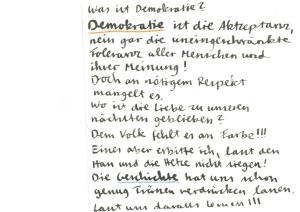 Was ist Demokratie?
Demokratie ist die Aktzeptanz,
nein gar die uneingeschränkte
Toleranz aller Menschen und
ihrer Meinung!
Doch an nötigem Respekt
mangelt es.
Wo ist die Liebe zu unseren
nächsten geblieben?
Dem Volk fehlt es an Farbe!!!
Eines aber erbitte ich, Lasst den
Hass und die Hetze nicht siegen!
Die Geschichte hat uns schon
genug Tränen verdrücken lassen.
Lasst uns daraus lernen!!!